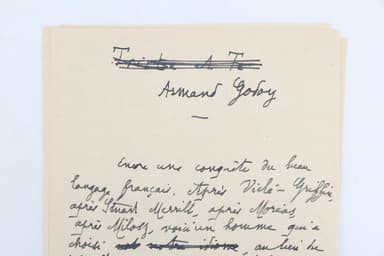 Armand Godoy
Encore une conquête du beau
langage français. Après Vielé-Griffin,
après Stuart Merrill, après Moréas,
après Milosz, voici un homme qui a
choisi notre idiome, au lieu de